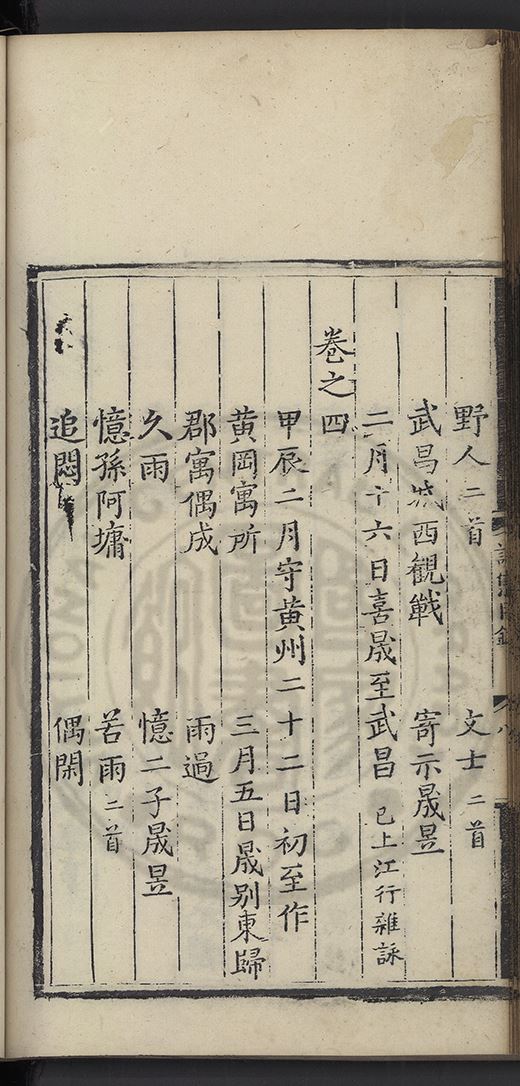 野人二首 文士二首
武昌城西觀戰 寄示晟昱
二月十六日喜晟至武昌 已上江行雜詠
卷之四
甲辰二月守黄州二十二日初至作
黄岡寓所 三月五日晟别東歸
郡寓偶成 雨過
久雨 憶二子晟昱
憶孫阿墉 苦雨二首
追悶 偶閑